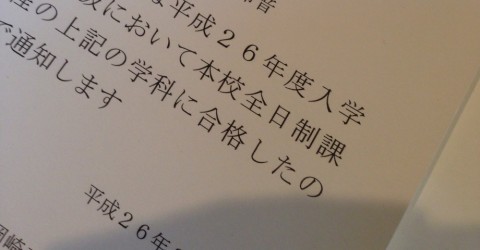 音
は平成２６年度入学
抜において本校全日制課
程の上記の学科に合格したの
で通知します
平成２６年
岡崎